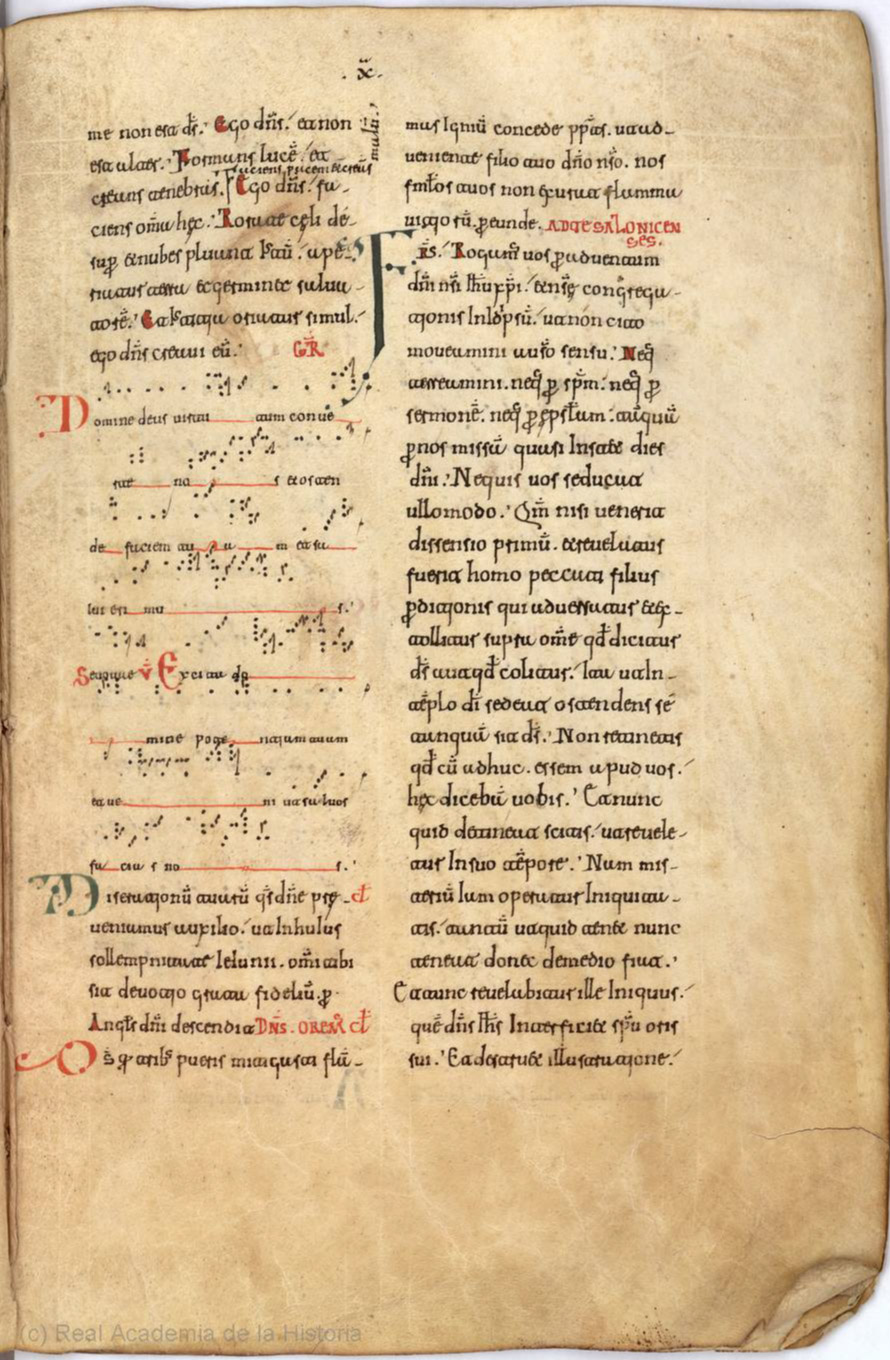 .x.
me non est ds̄. Ego dn̄s. et non
est alter. Formans lucē. et
faciens pacem et creās
malū
creans tenebras. Ego dn̄s. fa-
ciens om̄a hęc. Rorate cęli de-
sup̱ et nubes pluant iustū. ape-
riatur terra et germinet salua-
torē. Et iustitia oriatur simul.
ego dn̄s creaui eū. GR̄
Domine deus uirtutum conuer
te nos et osten
de faciem tuam et sa
lui eri mus.
Seuque V̄ Excita do
mine potentiam tuam
et ueni ut saluos
facias nos.
Miserationū tuarū qs̄ dn̄e p̱
ueniamur auxilio. ut in huius
sollempnitate ieiunii. om̄i tibi
sit deuotio grata fideliū. p̱
Angls̄ dn̄i descendit DN̄S. OREM̄
Ds̄ q̱ trib; pueris mitigasti flā-
mas igniū concede pp̄s. ut ad-
ueniente filio tuo dn̄o nr̄o. nos
fml̄os tuos non exurat flamma
uitiorū. p̱ eunde. AD TESALONICEN
SES.
FR̄S. Rogam̄ uos p̱ aduentum
dn̄i nr̄i ih̄u xp̄i. et nr̄ę congrega-
tionis in ipsū. ut non cito
moueamini a ur̄o sensu. Neq̄
terreamini. neq̄ p̱ sp̄m. neq̄ p̱
sermonē. neq̄ p̱ epstl̄am. tāquā
p̱ nos missā quasi instet dies
dn̄i. Nequis uos seducat
ullo modo. Qm̄ nisi uenerit
dissensio primū. et reuelatus
fuerit homo peccati filius
p̱ditionis qui aduersatur et ex-
tollitur supra om̄e qd̄ dicitur
ds̄ aut qd̄ colitur. Ita ut in
tēplo dī sedeat ostendens sē
tanquā sit ds̄. Non retinetis
qd̄ cū adhuc essem apud uos.
hęc dicebā uobis. Et nunc
quid detineat scitis. ut reuele-
tur in suo tēpore. Num mis-
teriū iam operatur iniquita-
tis. tantū ut quid tenet nunc
teneat donec de medio fiat.
Et tunc reuelabitur ille iniquus.
quē dn̄s ih̄s interficiet sp̄u oris
sui. Et destruet illustratione.
(c) Real Academia de la Historia